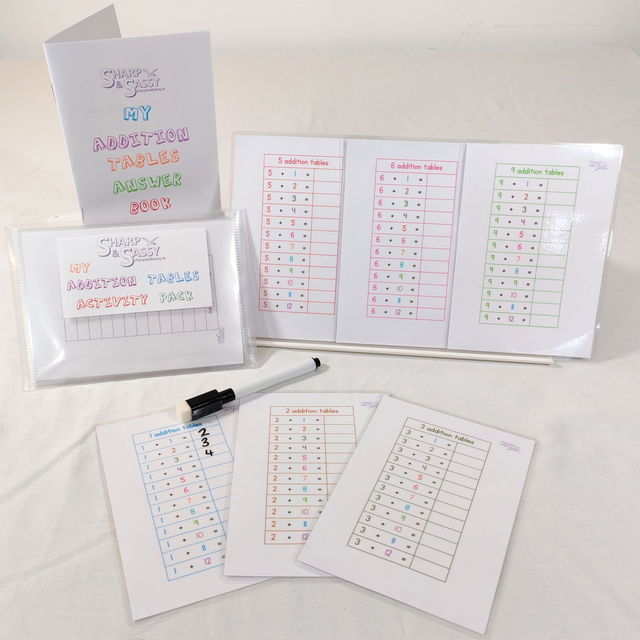 SHARP
& SASSY
MY
ADDITION
TABLES
ANSWER
BOOK
SHARP
& SASSY
MY
ADDITION TABLES
ACTIVITY PACK
5 addition tables
5 + 1 =
5 + 2 =
5 + 3 =
5 + 4 =
5 + 5 =
5 + 6 =
5 + 7 =
5 + 8 =
5 + 9 =
5 + 10 =
5 + 11 =
5 + 12 =
6 addition tables
6 + 1 =
6 + 2 =
6 + 3 =
6 + 4 =
6 + 5 =
6 + 6 =
6 + 7 =
6 + 8 =
6 + 9 =
6 + 10 =
6 + 11 =
6 + 12 =
9 addition tables
9 + 1 =
9 + 2 =
9 + 3 =
9 + 4 =
9 + 5 =
9 + 6 =
9 + 7 =
9 + 8 =
9 + 9 =
9 + 10 =
9 + 11 =
9 + 12 =
1 addition tables
1 + 1 = 2
1 + 2 = 3
1 + 3 = 4
1 + 4 =
1 + 5 =
1 + 6 =
1 + 7 =
1 + 8 =
1 + 9 =
1 + 10 =
1 + 11 =
1 + 12 =
2 addition tables
2 + 1 =
2 + 2 =
2 + 3 =
2 + 4 =
2 + 5 =
2 + 6 =
2 + 7 =
2 + 8 =
2 + 9 =
2 + 10 =
2 + 11 =
2 + 12 =
3 addition tables
3 + 1 =
3 + 2 =
3 + 3 =
3 + 4 =
3 + 5 =
3 + 6 =
3 + 7 =
3 + 8 =
3 + 9 =
3 + 10 =
3 + 11 =
3 + 12 =